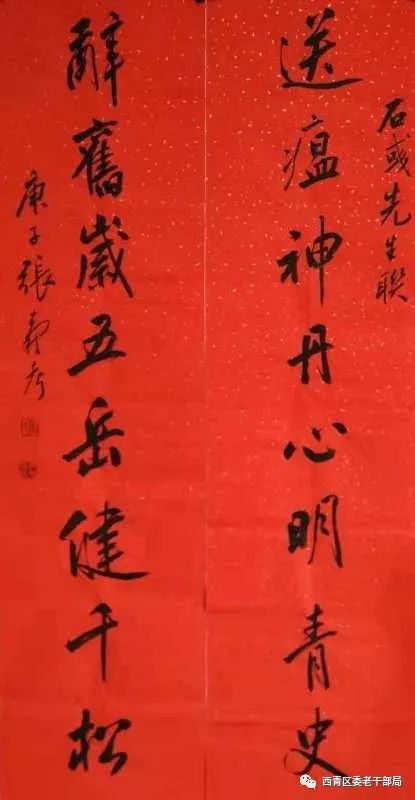 石彧先生聯
送瘟神丹心明青史
辭舊歲五岳健千松
庚子張壽
西青区委老干部局